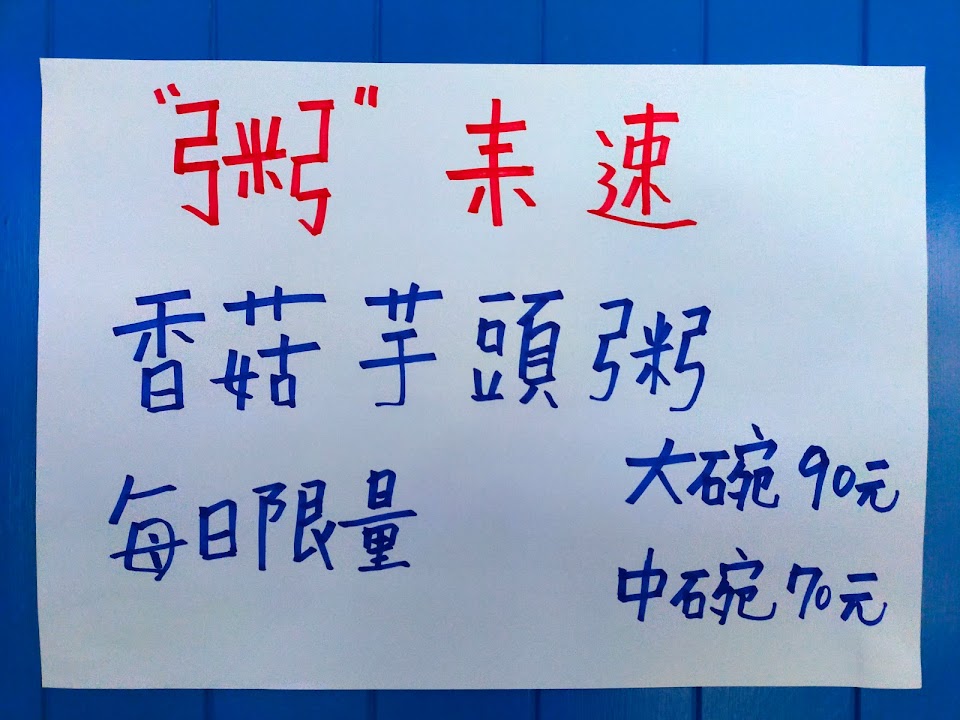 "粥" 耒速
香菇芋頭粥
每日限量
大碗 90元
中碗 70元